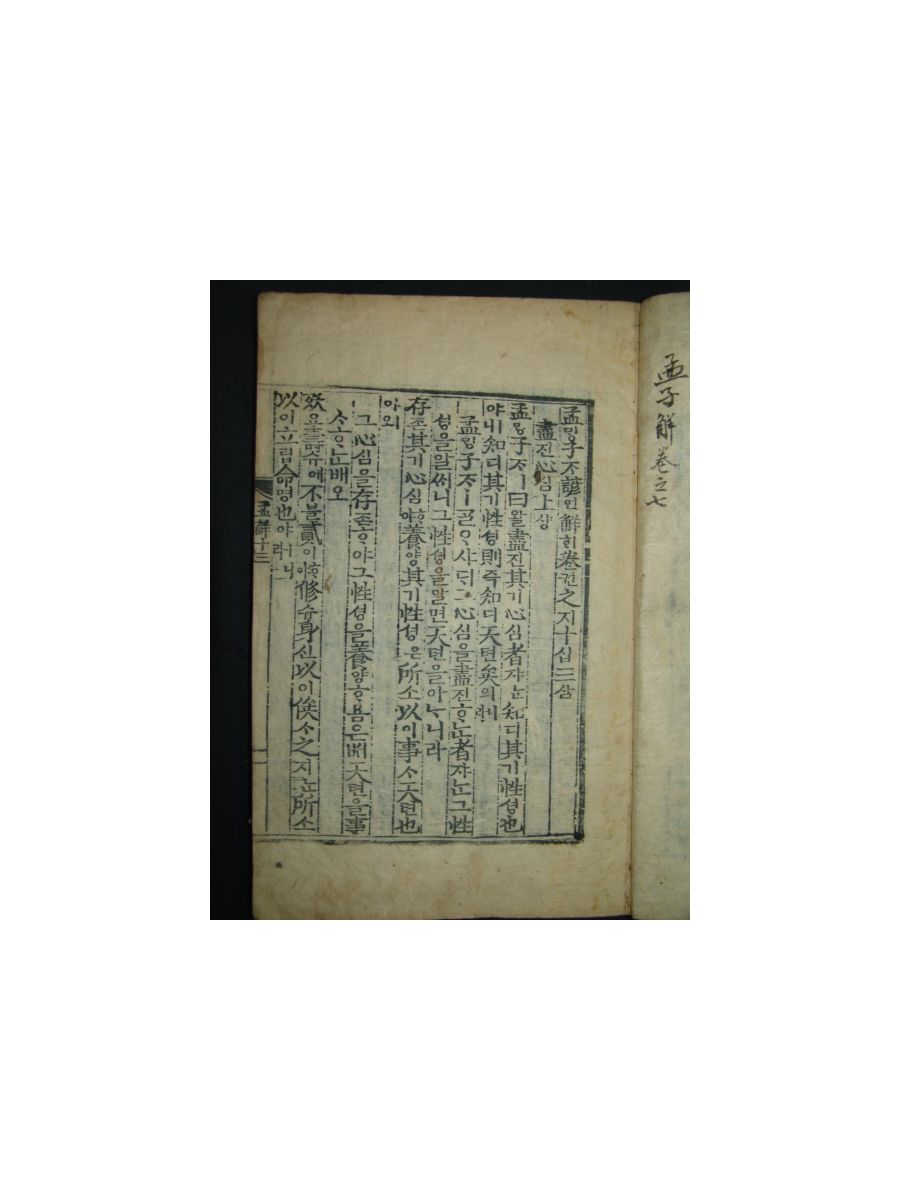 孟子解卷之七
孟ᄆᆡᆼ子ᄌᆞ諺언解ᄒᆡ卷권之지十십三삼
盡진心심上샹
孟ᄆᆡᆼ子ᄌᆞㅣ曰왈盡진其기心심者쟈ᄂᆞᆫ知디其기性셩也
야ㅣ니知디其기性셩則즉知디天텬矣의니라
孟ᄆᆡᆼ子ᄌᆞㅣᄀᆞᆯᄋᆞ샤ᄃᆡ그心심을盡진ᄒᆞᄂᆞᆫ者쟈ᄂᆞᆫ그性
셩을알ᄯᅥ니그性셩을알면天텬을아ᄂᆞ니라
存존其기心심ᄒᆞ야養양其기性셩은所소以이事ᄉᆞ天텬也
야ㅣ오
그心심을存존ᄒᆞ야그性셩을養양ᄒᆞ욤은ᄡᅥ天텬을事
ᄉᆞᄒᆞᄂᆞᆫ배오
殀요壽슈에不블貳이ᄒᆞ야修슈身신以이俟ᄉᆞ之지ᄂᆞᆫ所소
以이立립命명也야ㅣ니라
孟解十三
一